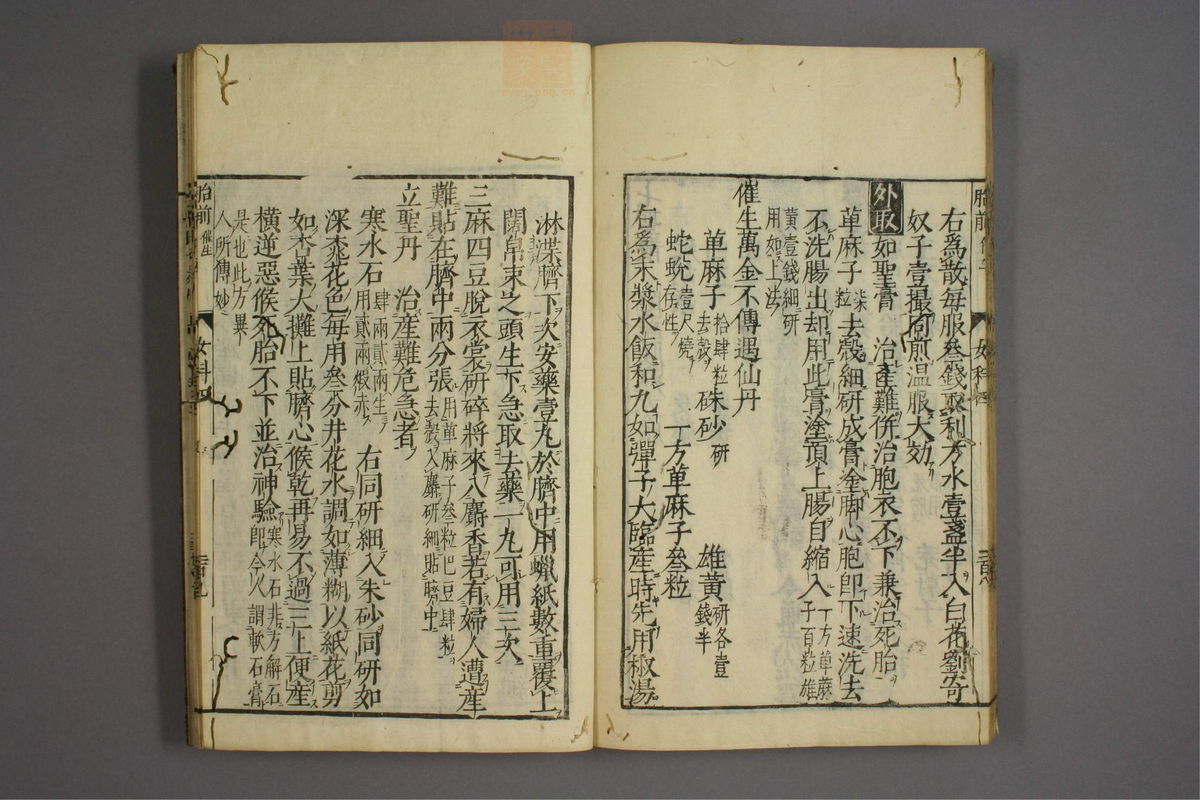 右爲散每服叄錢取利方水壹盞半入白花劉寄
奴子壹撮同煎温服大効
外取 如聖膏 治產難併治胞衣不下兼治死胎
萆麻子 柒粒 去殼細研成膏塗脚心胞即下速洗去
不洗腸出却用此膏塗頂上腸自縮入 一方萆麻子百粒雄
黃壹錢細研用如上法
催生萬金不傳遇仙丹
萆麻子 拾肆粒去殼 硃砂 研 雄黃 研各壹錢半
蛇蛻 壹尺燒存性 一方萆麻子叄粒
右爲末漿水飯和丸如彈子大臨產時先用椒湯
淋渫臍下次安藥壹丸於臍中用蠟紙數重覆上
闊帛束之頭生下急取去藥一丸可用三次
三麻四豆脫衣裳研碎將來入麝香若有婦人遭產
難貼在臍中兩分張 用萆麻子叄粒巴豆肆粒去殼入麝研細貼臍中
立聖丹 治產難危急者
寒水石 肆兩貳兩生用貳兩煆赤 右同研細入朱砂同研如
深桃花色每用叄分井花水調如薄糊以紙花剪
如杏葉大攤上貼臍心候乾再易不過三上便產
橫逆惡候死胎不下並治神驗 寒水石非方解石即今人謂軟石膏
是也此方異人所傳妙
胎前 催生
女科四